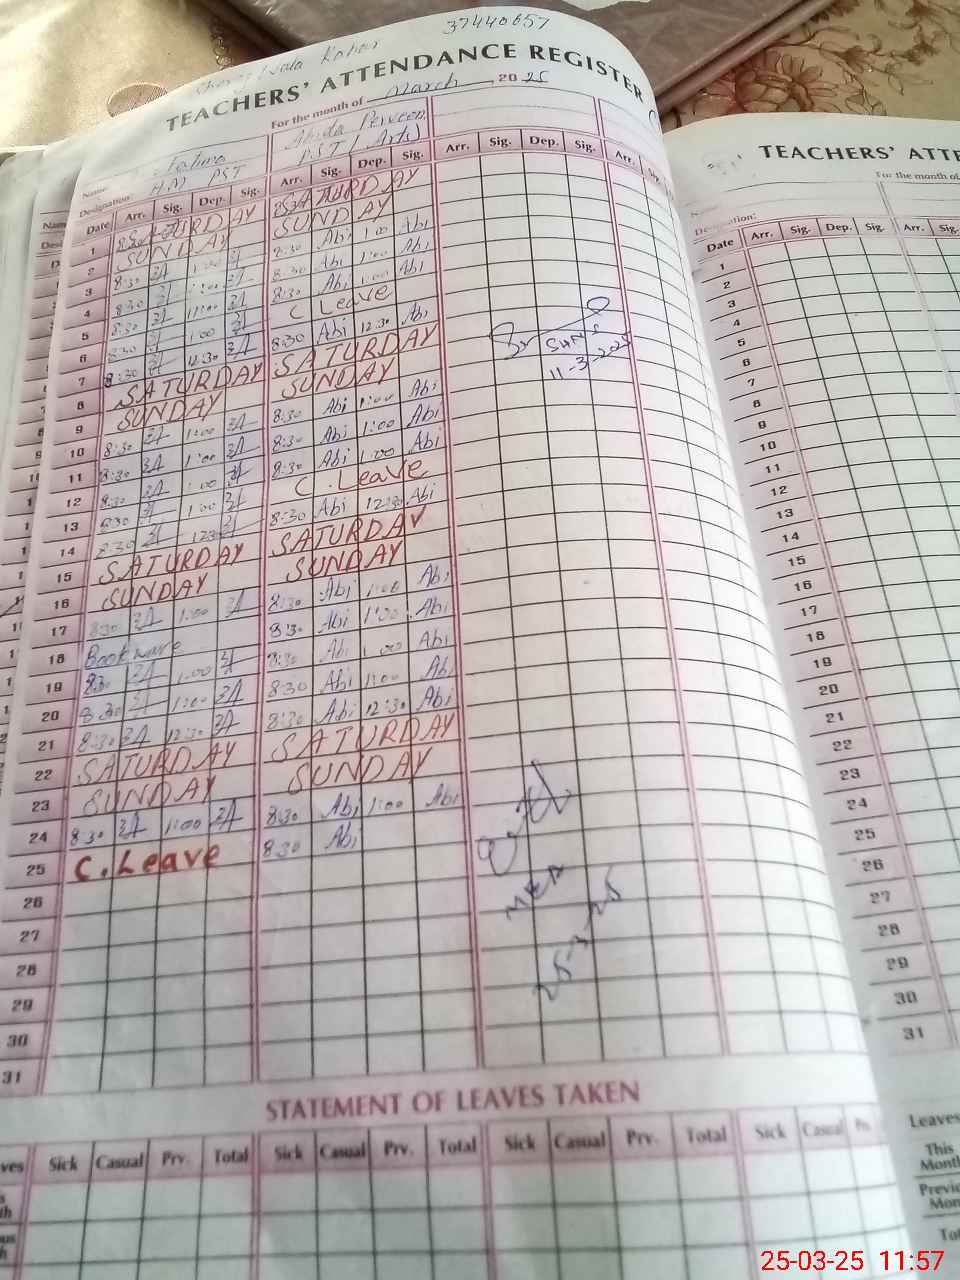 37440657
TEACHERS' ATTENDANCE REGISTER
For the month of March, 2025
Name: Fatima Abida Perveen
Designation: PST PST (Arts)
Date Arr. Sig. Dep. Sig. Arr. Sig. Dep. Sig. Arr. Sig. Dep. Sig. Arr. Sig.
1 SATURDAY SATURDAY
2 SUNDAY SUNDAY
3 8:30 1:00 8:30 Abi 1:00 Abi
4 8:30 1:00 8:30 Abi 1:00 Abi
5 8:30 1:00 8:30 Abi 1:00 Abi
6 8:30 1:00 C Leave
7 8:30 12:30 8:30 Abi 12:30 Abi
8 SATURDAY SATURDAY
9 SUNDAY SUNDAY
10 8:30 1:00 8:30 Abi 1:00 Abi
11 8:30 1:00 8:30 Abi 1:00 Abi
12 8:30 1:00 8:30 Abi 1:00 Abi
13 8:30 1:00 C. Leave
14 8:30 12:30 8:30 Abi 12:30 Abi
15 SATURDAY SATURDAY
16 SUNDAY SUNDAY
17 8:30 1:00 8:30 Abi 1:00 Abi
18 8:30 Abi 1:00 Abi
19 8:30 1:00 8:30 Abi 1:00 Abi
20 8:30 1:00 8:30 Abi 1:00 Abi
21 8:30 12:30 8:30 Abi 12:30 Abi
22 SATURDAY SATURDAY
23 SUNDAY SUNDAY
24 8:30 1:00 8:30 Abi 1:00 Abi
25 C. Leave 8:30 Abi
26
27
28
29
30
31
11-3-2025
25-3-25
STATEMENT OF LEAVES TAKEN
Sick Casual Prv. Total Sick Casual Prv. Total Sick Casual Prv. Total Sick Casual
TEACHERS' ATTE
For the month of
Designation:
Date Arr. Sig. Dep. Sig. Arr. Sig.
1
2
3
4
5
6
7
8
9
10
11
12
13
14
15
16
17
18
19
20
21
22
23
24
25
26
27
28
29
30
31
Leaves
This
Month
25-03-25 11:57